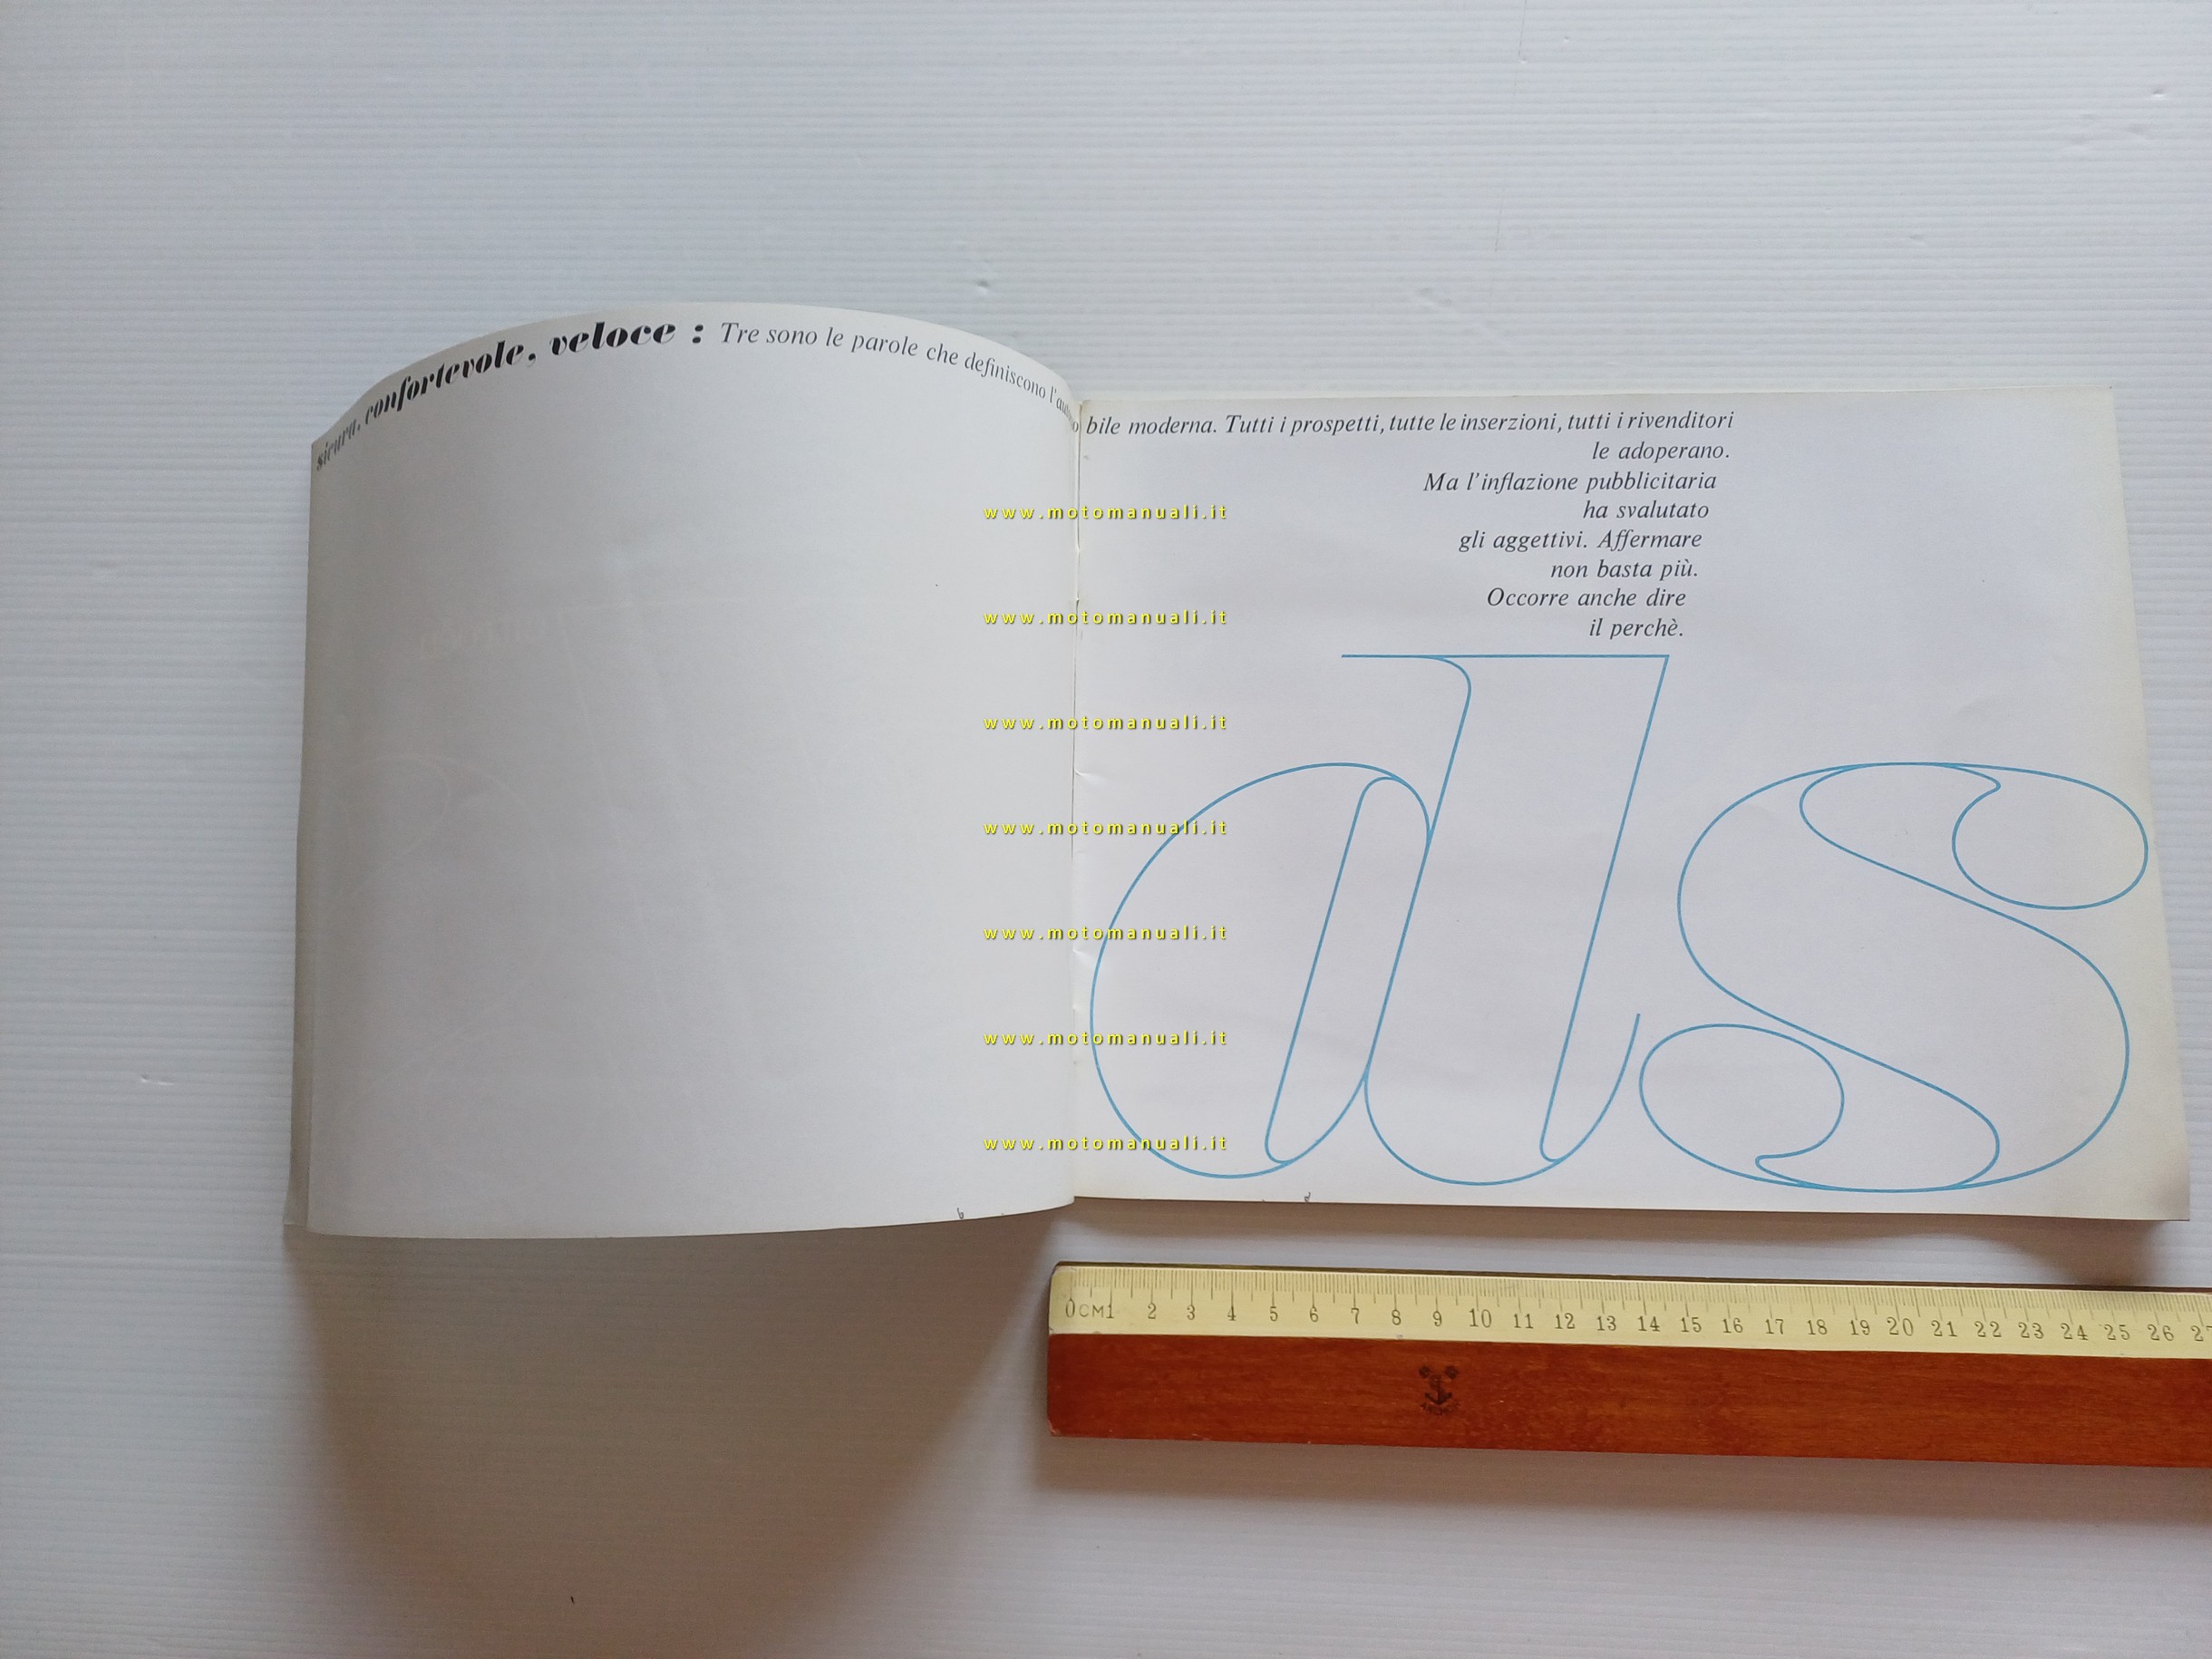 sicura, confortevole, veloce : Tre sono le parole che definiscono l'automobile moderna. Tutti i prospetti, tutte le inserzioni, tutti i rivenditori
le adoperano.
Ma l'inflazione pubblicitaria
ha svalutato
gli aggettivi. Affermare
non basta più.
Occorre anche dire
il perchè.
ds
www.motomanuali.it
www.motomanuali.it
www.motomanuali.it
www.motomanuali.it
www.motomanuali.it
www.motomanuali.it
www.motomanuali.it
0CM1 2 3 4 5 6 7 8 9 10 11 12 13 14 15 16 17 18 19 20 21 22 23 24 25 26 27